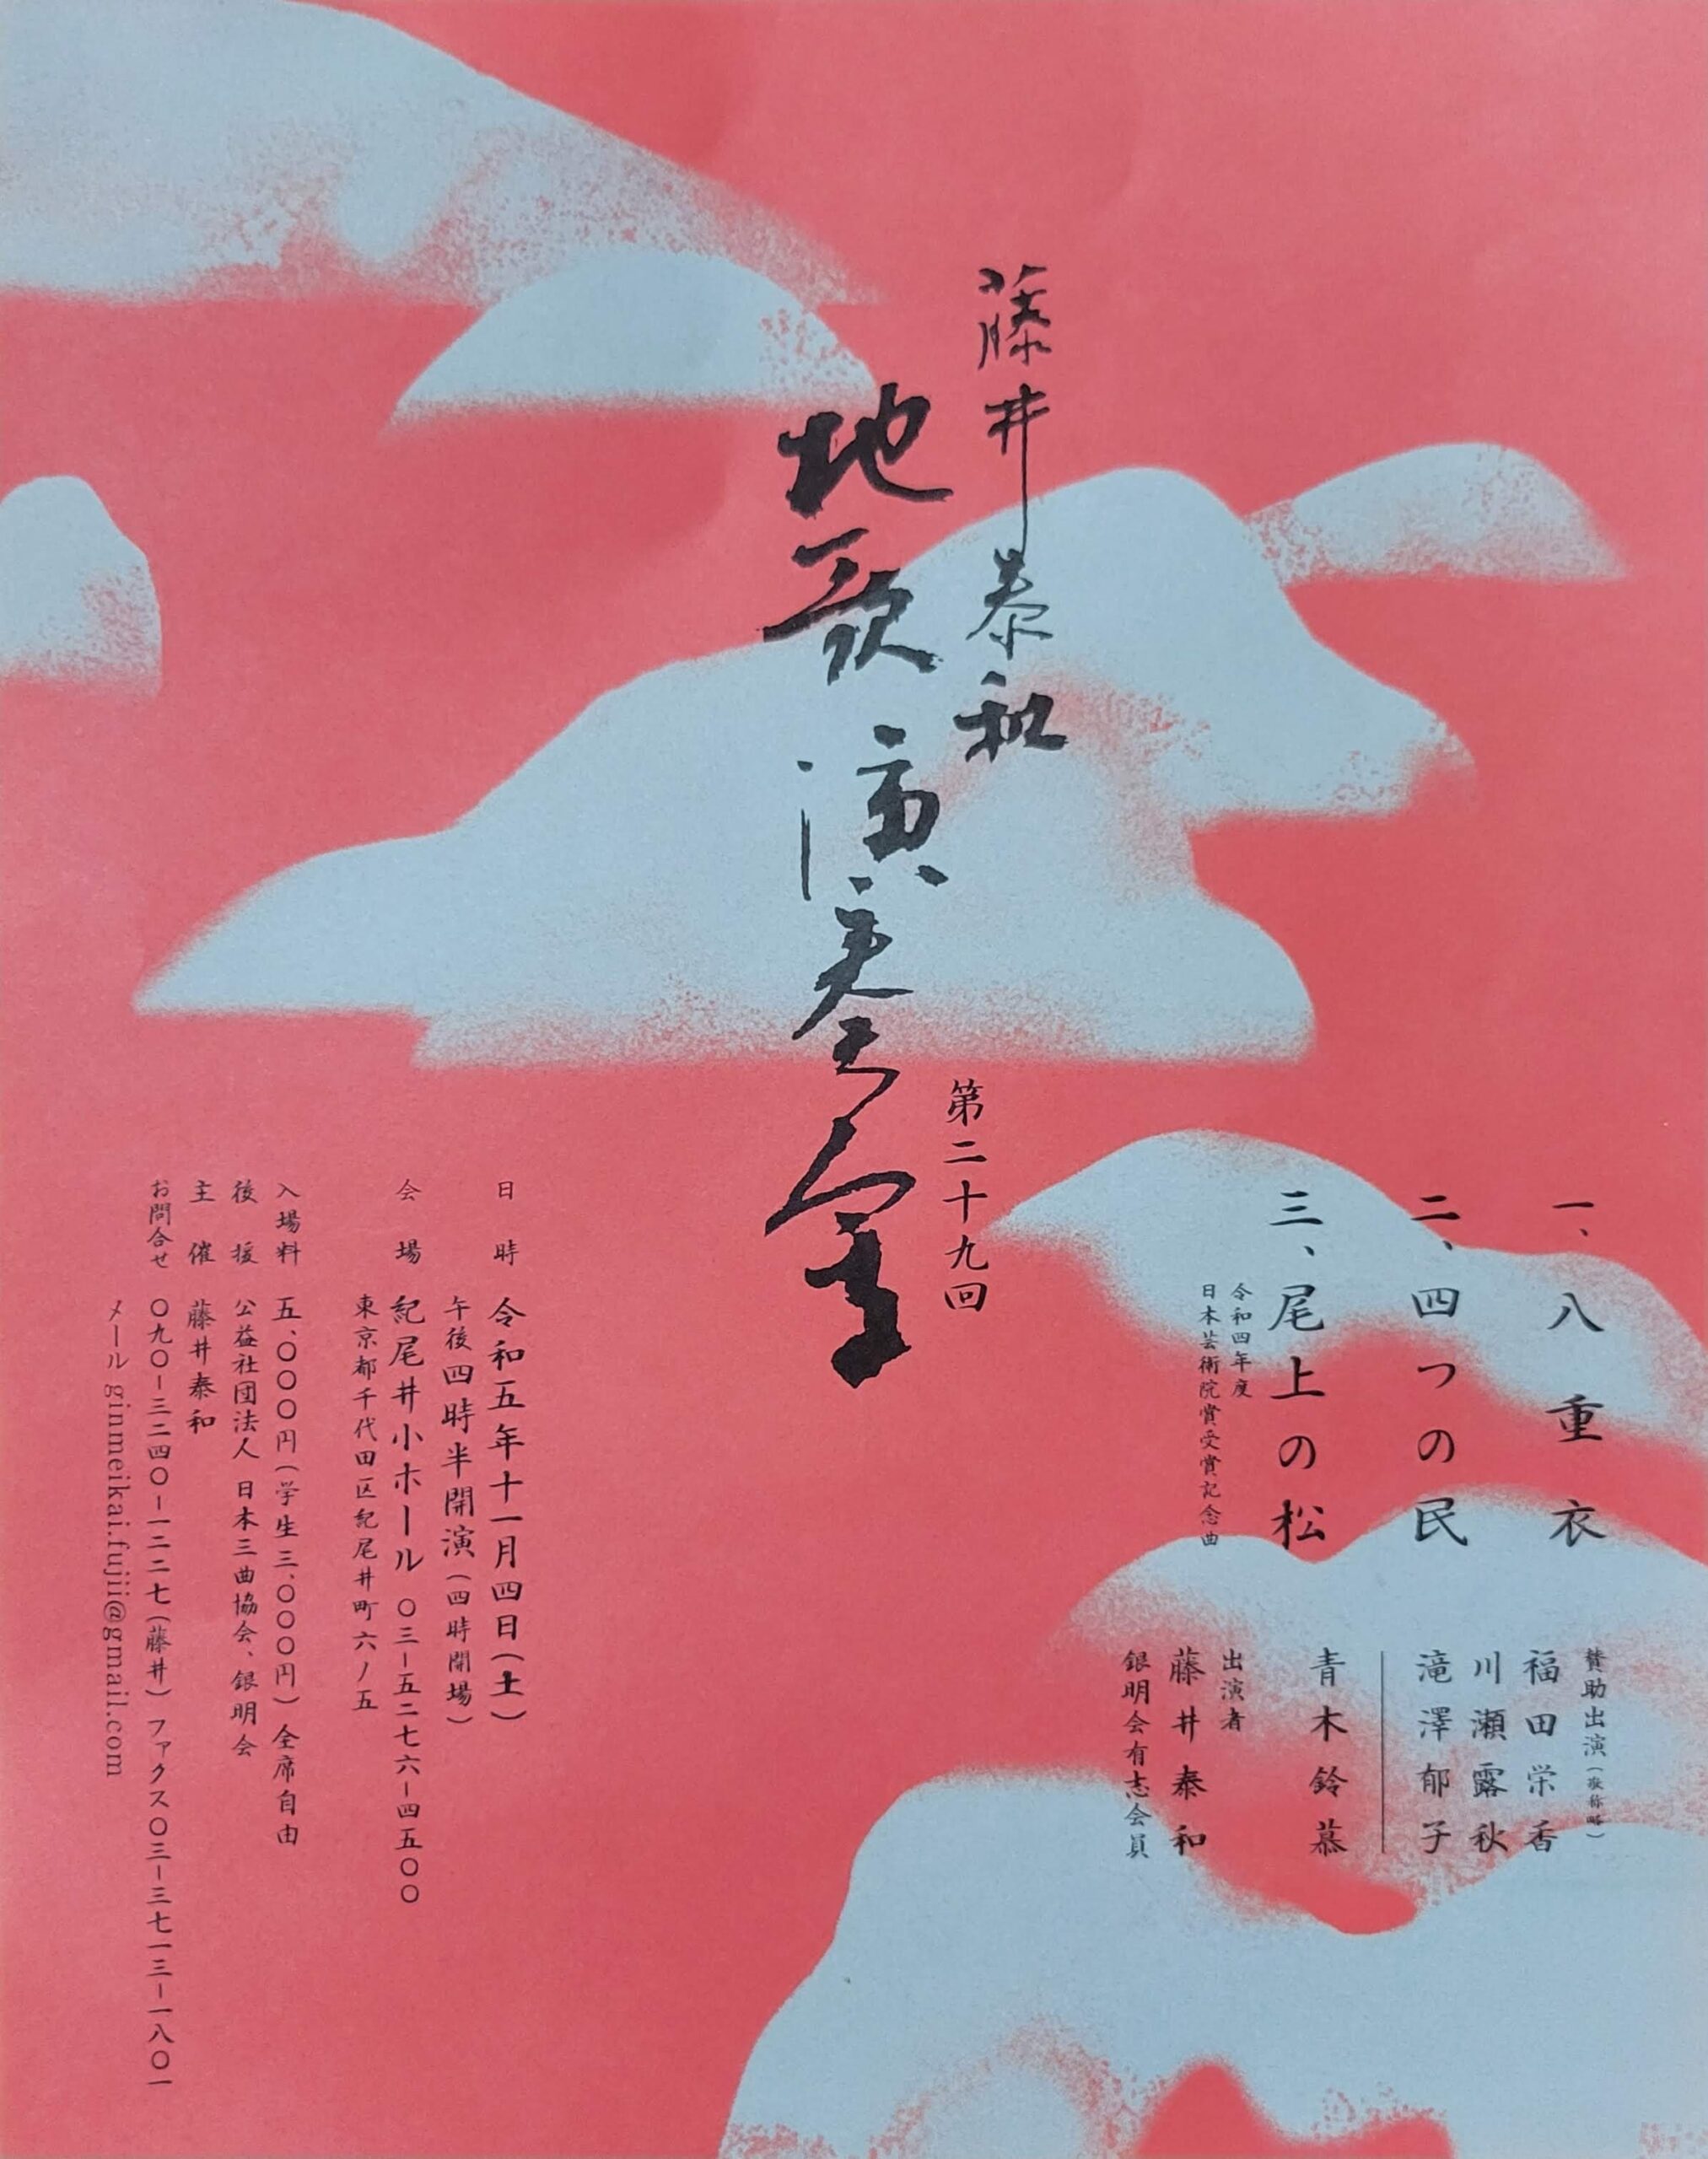 一、八重衣
二、四つの民
三、尾上の松
令和四年度
日本芸術院賞受賞記念曲
賛助出演（敬称略）
福田栄香
川瀬露秋
滝澤郁子
青木鈴慕
出演者
藤井泰和
銀明会有志会員
藤井泰和
地歌演奏会
第二十九回
日時 令和五年十一月四日（土）
午後四時半開演（四時開場）
会場 紀尾井小ホール 〇三−五二七六−四五〇〇
東京都千代田区紀尾井町六ノ五
入場料 五、〇〇〇円（学生三、〇〇〇円）全席自由
後援 公益社団法人 日本三曲協会、銀明会
主催 藤井泰和
お問合せ 〇九〇−三二四〇−一二二七（藤井）ファクス〇三−三七一三−一八〇一
メール ginmeikai.fujii@gmail.com